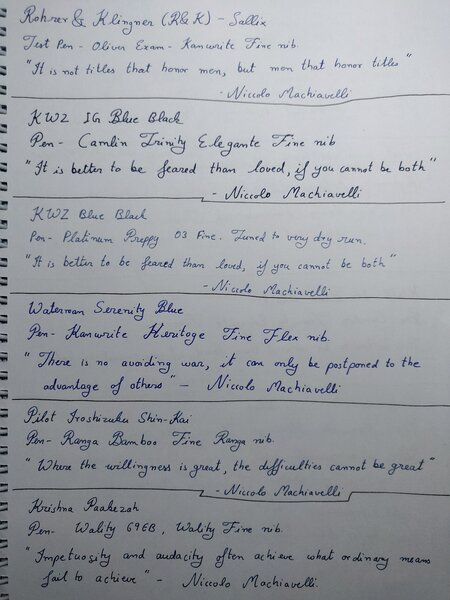 Rohrer & Klingner (R&K) - Salix
Test Pen - Oliver Exam - Kanwrite Fine nib.
"It is not titles that honor men, but men that honor titles"
- Niccolo Machiavelli
KWZ IG Blue Black
Pen - Camlin Trinity Elegante Fine nib
"It is better to be feared than loved, if you cannot be both"
- Niccolo Machiavelli
KWZ Blue Black
Pen - Platinum Preppy 03 Fine. Tuned to very dry run.
"It is better to be feared than loved, if you cannot be both"
- Niccolo Machiavelli
Waterman Serenity Blue
Pen - Kanwrite Heritage Fine Flex nib.
"There is no avoiding war, it can only be postponed to the
advantage of others" - Niccolo Machiavelli
Pilot Iroshizuku Shin-Kai
Pen - Ranga Bamboo Fine Ranga nib.
"Where the willingness is great, the difficulties cannot be great"
- Niccolo Machiavelli
Krishna Paakezah
Pen - Wality 69EB, Wality Fine nib.
"Impetuosity and audacity often achieve what ordinary means
fail to achieve" - Niccolo Machiavelli.